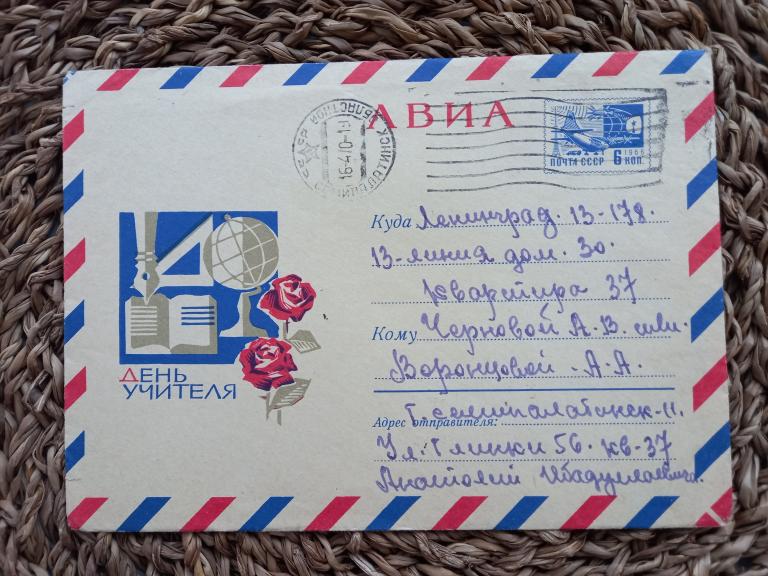 АВИА
СССР СЕМИПАЛАТИНСК ОБЛАСТНОЙ
16-4 70-19
1966
ПОЧТА СССР 6 КОП
Куда Ленинград. 13-178.
13-линия дом. 30.
Квартира 37
Кому Черновой А. В. или.
Воронцовой - А. А.
Адрес отправителя: Г. Семипалатинск-11.
Ул. Глинки 56. кв-37
Анатолий
ДЕНЬ
УЧИТЕЛЯ